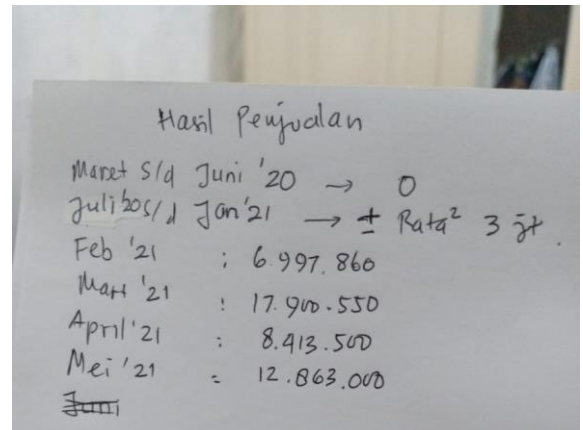 Hasil Penjualan
Maret s/d Juni '20 → 0
Juli '20 s/d Jan '21 → ± Rata² 3 jt.
Feb '21 : 6.997.860
Mart '21 : 17.900.550
April '21 : 8.413.500
Mei '21 = 12.863.000
Juni